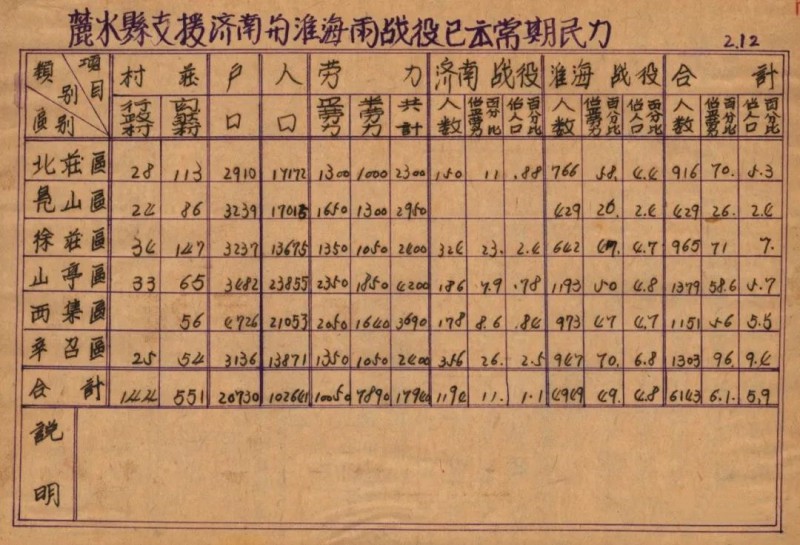 麓水縣支援济南与淮海兩战役已去常期民力
2.12
類别 項目 村莊 户 人 劳力 济南战役 淮海战役 合計
區别 行政村 自然村 口 口 正劳力 半劳力 共計 人数 佔正劳力百分比 佔人口百分比 人数 佔正劳力百分比 佔人口百分比 人数 佔正劳力百分比 佔人口百分比
北莊區 28 113 2910 17172 1300 1000 2300 150 11 .88 766 58. 4.4 916 70. 5.3
凫山區 24 86 3239 17015 1650 1300 2950 429 26. 2.4 429 26. 2.4
徐莊區 34 147 3237 13675 1350 1050 2400 324 23. 2.4 642 47. 4.7 965 71 7.
山亭區 33 65 3482 23855 2350 1850 4200 186 7.9 .78 1193 50 4.8 1379 58.6 5.7
西集區 56 4726 21053 2050 1640 3690 178 8.6 .84 973 47 4.7 1151 56 5.5
辛召區 25 54 3136 13871 1350 1050 2400 356 26. 2.5 947 70. 6.8 1303 96. 9.4
合計 144 551 20730 102641 10050 7890 17940 1194 11. 1.1 4949 49. 4.8 6143 6.1. 5.9
説明